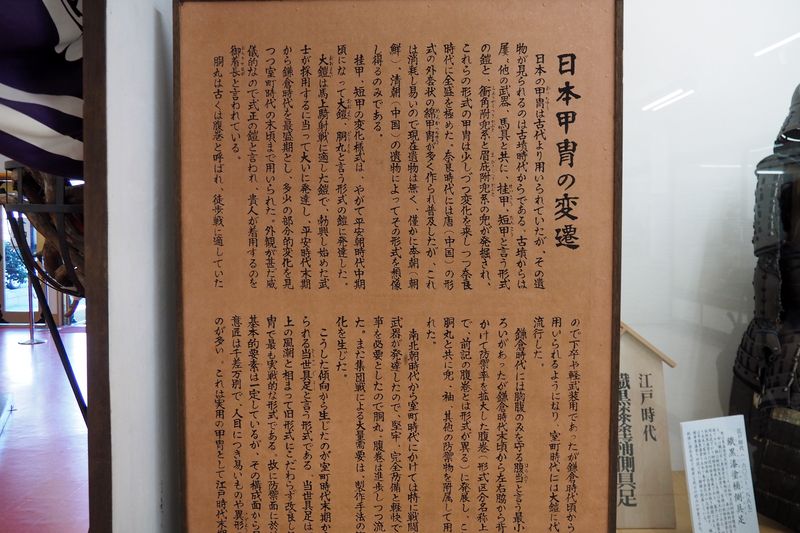 日本甲冑の変遷
日本の甲冑は古代より用いられていたが、その遺
物が見られるのは古墳時代からである。古墳からは
屡〻他の武器、馬具と共に、挂甲、短甲と言う形式
の鎧と、衝角附兜系と眉庇附兜系の兜が発掘され、
これらの形式の甲冑は少しづつ変化を来しつつ奈良
時代に全盛を極めた。奈良時代には唐(中国)の形
式の外套状の綿甲冑が多く作られ普及したが、これ
は消耗し易いので現在遺物は無く、僅かに李朝(朝
鮮)、清朝(中国)の遺物によってその形式を想像
し得るのみである。
挂甲、短甲の変化様式は、やがて平安朝時代中期
頃になって大鎧、胴丸と言う形式の鎧に発達した。
大鎧は馬上騎射戦に適した鎧で、勃興し始めた武
士が採用するに当って大いに発達し、平安時代末期
から鎌倉時代を最盛期とし、多少の部分的変化を見
つつ室町時代の末頃まで用いられた。外観が甚だ威
儀的なので式正の鎧と言われ、貴人が着用するのを
御着長と言われている。
胴丸は古くは腹巻と呼ばれ、徒歩戦に適していた
ので下卒や軽武装用であったが鎌倉時代頃から
用いられるようになり、室町時代には大鎧に代
流行した。
鎌倉時代には胸腹のみを守る腹当と言う最小
ろいがあったが鎌倉時代末頃から左右脇から背
かけて防禦率を拡大した腹巻(形式区分名称上
で、前記の腹巻とは形式が異る)に発展し、こ
胴丸と共に兜、袖、其他の防禦物を附属して用
れた。
南北朝時代から室町時代にかけては特に戦闘
武器が発達したので、堅牢、完全防備と軽快で
事を必要としたので胴丸、腹巻は進歩しつつ流
た。また集団戦による大量需要は、製作手法の
化を生じた。
こうした傾向から生じたのが室町時代末期か
られる当世具足と言う形式である。当世具足は
上の風潮と相まって旧形式にこだわらず改良し
冑で最も実戦的な形式である。故に防禦面に於
基本的要素は一定しているが、その構成面から
意匠は千差万別で、人目につき易いものや異形
のが多い。これは実用の甲冑として江戸時代末期
江戸時代
鐵黒漆塗桶側具足
鐵黒漆塗桶側具足